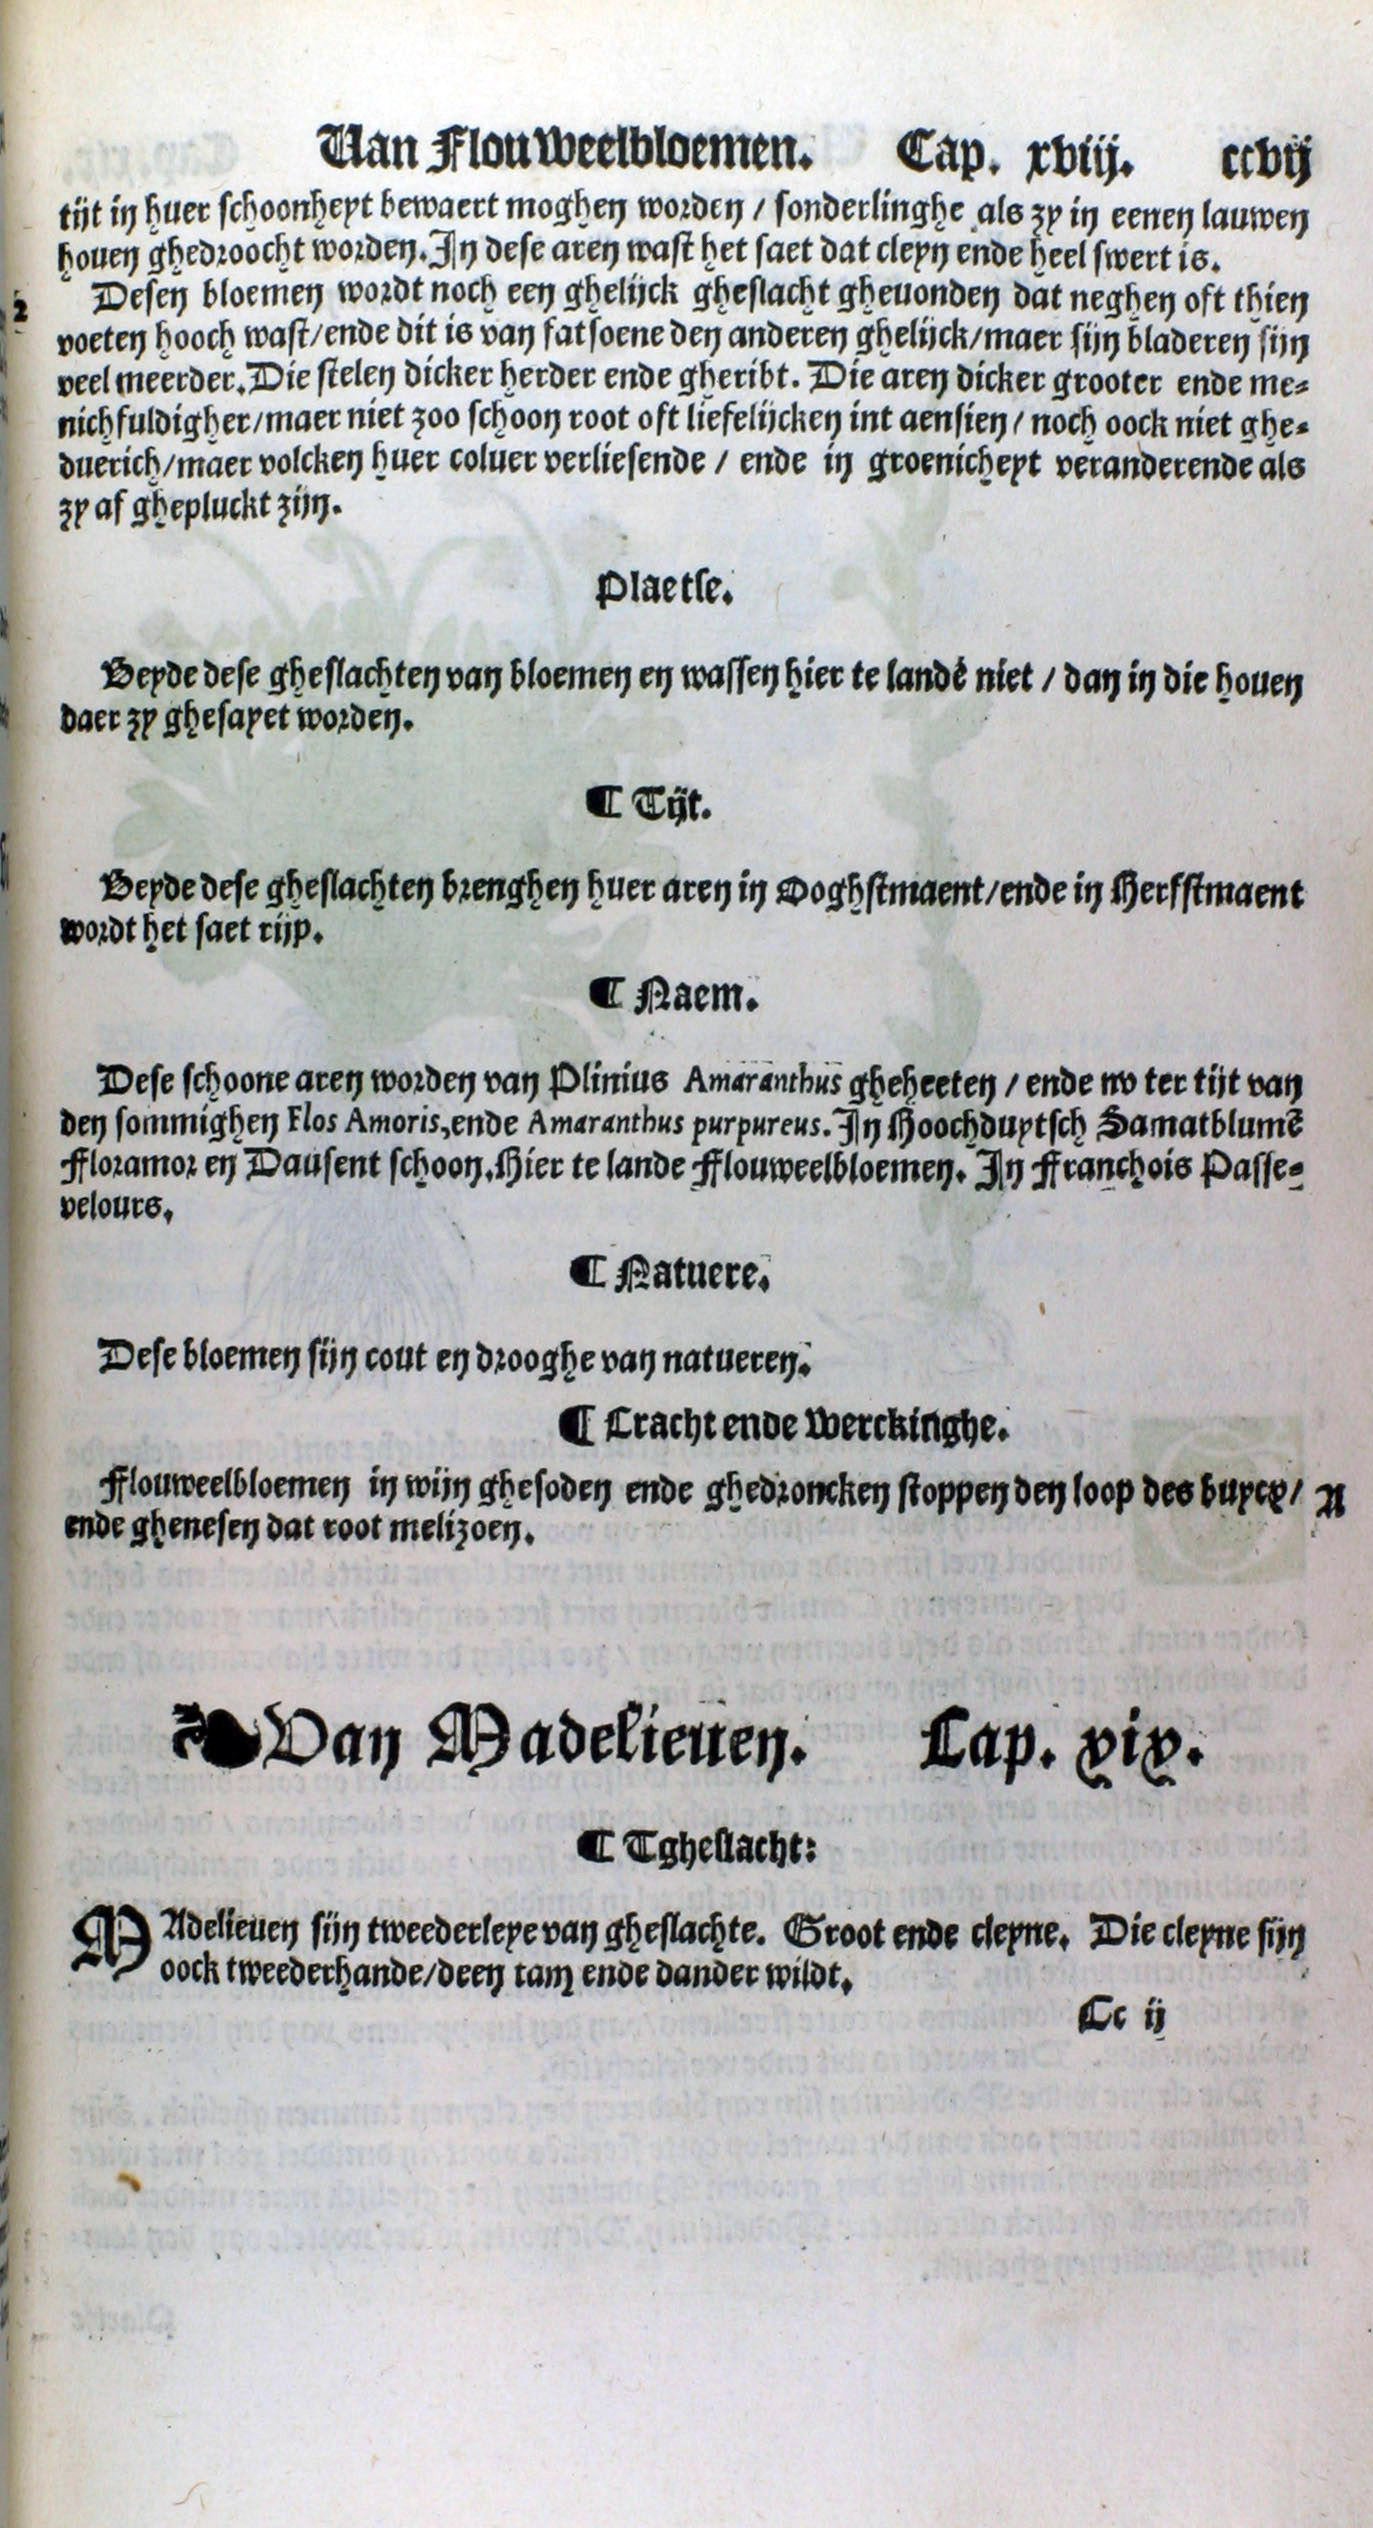 Van Flouweelbloemen. Cap. xviij. ccvij
tijt in huer schoonheyt bewaert moghen worden / sonderlinghe als zy in eenen lauwen
houen ghedroocht worden. In dese aren wast het saet dat cleyn ende heel swert is.
2 Desen bloemen wordt noch een ghelijck gheslacht gheuonden dat neghen oft thien
voeten hooch wast/ende dit is van fatsoene den anderen ghelijck/maer sijn bladeren sijn
veel meerder. Die stelen dicker herder ende gheribt. Die aren dicker grooter ende me-
nichfuldigher/maer niet zoo schoon root oft liefelijcken int aensien / noch oock niet ghe-
duerich/maer volcken huer coluer verliesende / ende in groenicheyt veranderende als
zy af ghepluckt zijn.
Plaetse.
Beyde dese gheslachten van bloemen en wassen hier te lande niet / dan in die houen
daer zy ghesayet worden.
¶ Tijt.
Beyde dese gheslachten brenghen huer aren in Ooghstmaent/ende in Herfstmaent
wordt het saet rijp.
¶ Naem.
Dese schoone aren worden van Plinius Amaranthus gheheeten / ende nv ter tijt van
den sommighen Flos Amoris, ende Amaranthus purpureus. In Hoochduytsch Samatblumē
Floramor en Dausent schoon. Hier te lande Flouweelbloemen. In Franchois Passe-
velours.
¶ Natuere.
Dese bloemen sijn cout en drooghe van natueren.
¶ Cracht ende Werckinghe.
Flouweelbloemen in wijn ghesoden ende ghedroncken stoppen den loop des buycx / A
ende ghenesen dat root melizoen.
❧ Van Madelieuen. Cap. xix.
¶ Tgheslacht:
MAdelieuen sijn tweederleye van gheslachte. Groot ende cleyne. Die cleyne sijn
oock tweederhande/deen tam ende dander wildt.
Cc ij